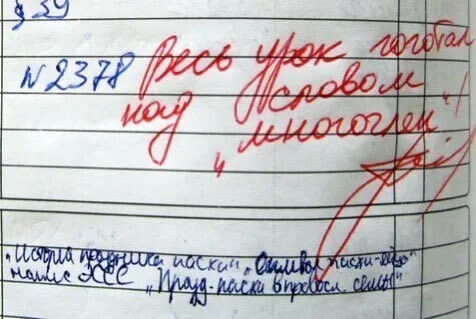 § 39
N 2378 Весь урок гоготал
над словом
„многочлен“!
„История праздника пасхи“, „Символ пасхи-яйцо“
„Празд. пасха в правосл. семье“